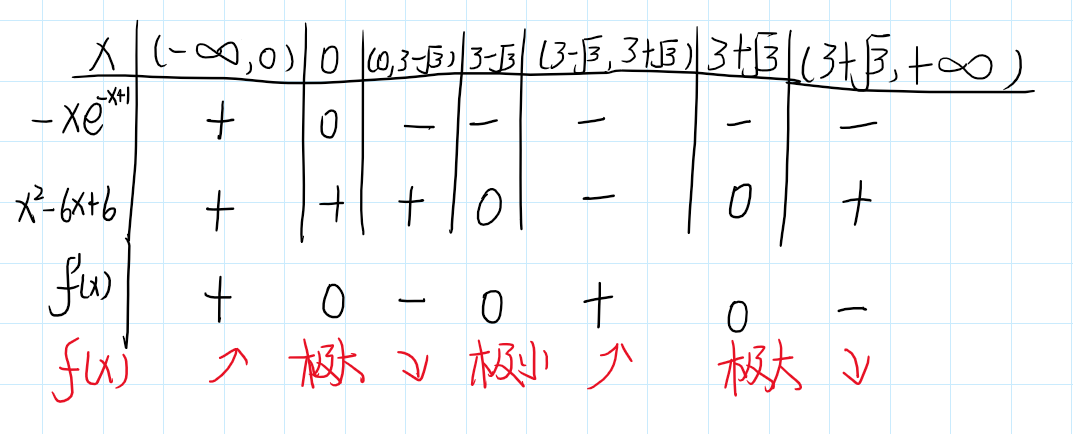 x (-∞,0) 0 (0,3-√3) 3-√3 (3-√3, 3+√3) 3+√3 (3+√3,+∞)
-xe^{-x+1} + 0 - - - - -
x²-6x+6 + + + 0 - 0 +
f'(x) + 0 - 0 + 0 -
f(x) ↗ 极大 ↘ 极小 ↗ 极大 ↘